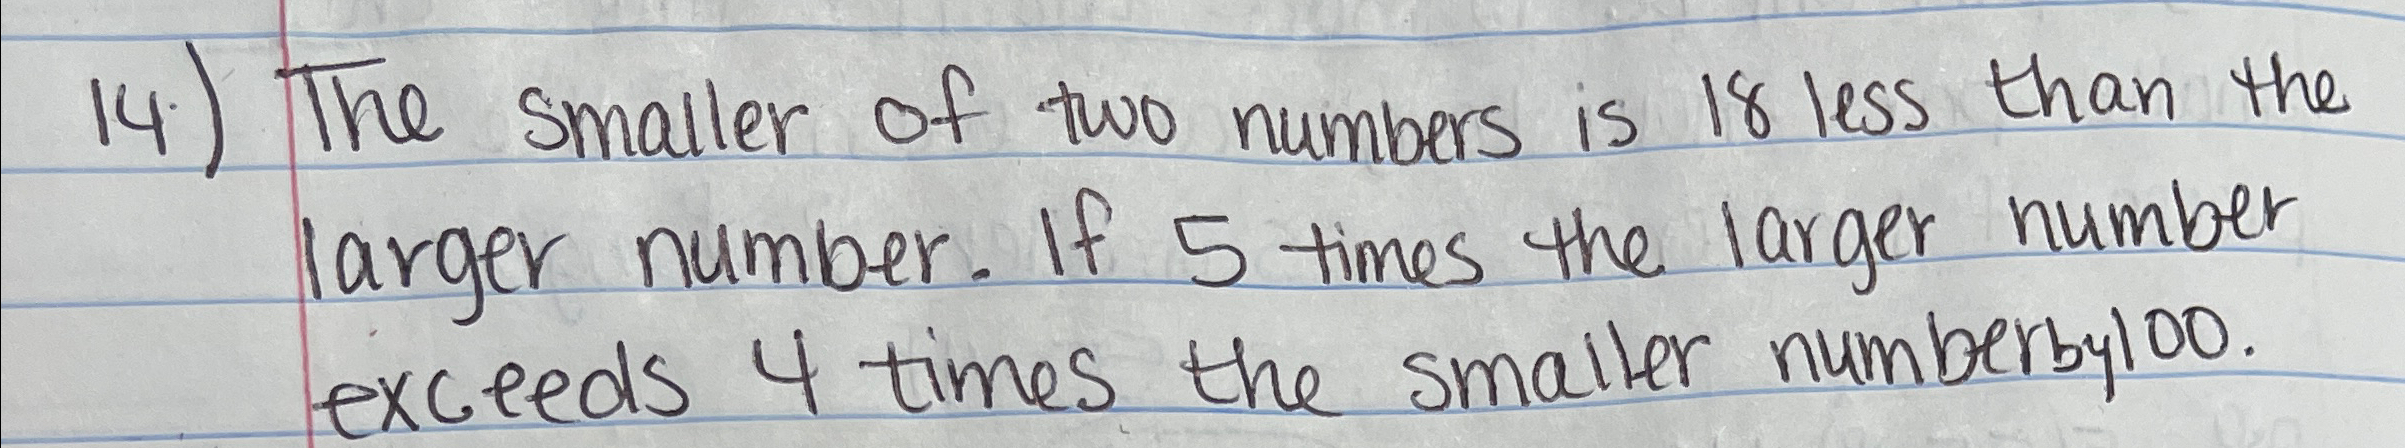 14.) The smaller of two numbers is 18 less than the
larger number. If 5 times the larger number
exceeds 4 times the smaller number by 100.